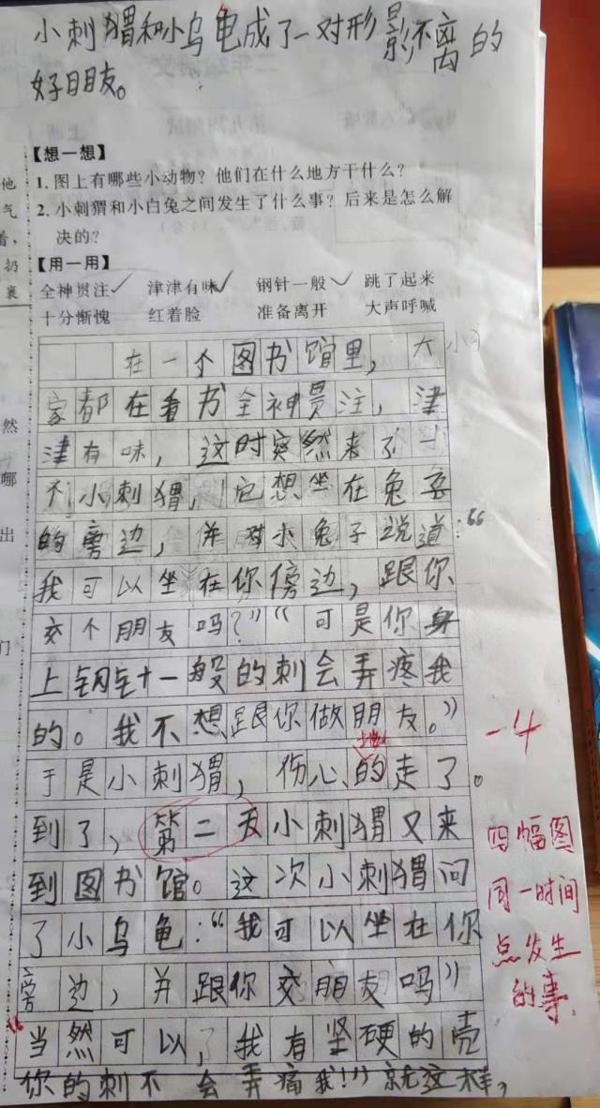 小刺猬和小乌龟成了一对形影不离的
好朋友。
【想一想】
1. 图上有哪些小动物？他们在什么地方干什么？
2. 小刺猬和小白兔之间发生了什么事？后来是怎么解
决的？
【用一用】
全神贯注 津津有味 钢针一般 跳了起来
十分惭愧 红着脸 准备离开 大声呼喊
在一个图书馆里，大
家都在看书全神贯注，津
津有味，这时突然来了一
个小刺猬，它想坐在兔子
的旁边，并对小兔子说道：“
我可以坐在你傍边，跟你
交个朋友吗？”“可是你身
上钢针一般的刺会弄疼我
的。我不想跟你做朋友。”
于是小刺猬，伤心的走了。
地
-4
到了，第二天小刺猬又来
到图书馆。这次小刺猬问
了小乌龟：“我可以坐在你
旁边，并跟你交朋友吗”
“当然可以，我有坚硬的壳
你的刺不会弄痛我！”就这样，
四幅图
同一时间
点发生
的事
他
气
着，
扔
裹
然
哪
出
们